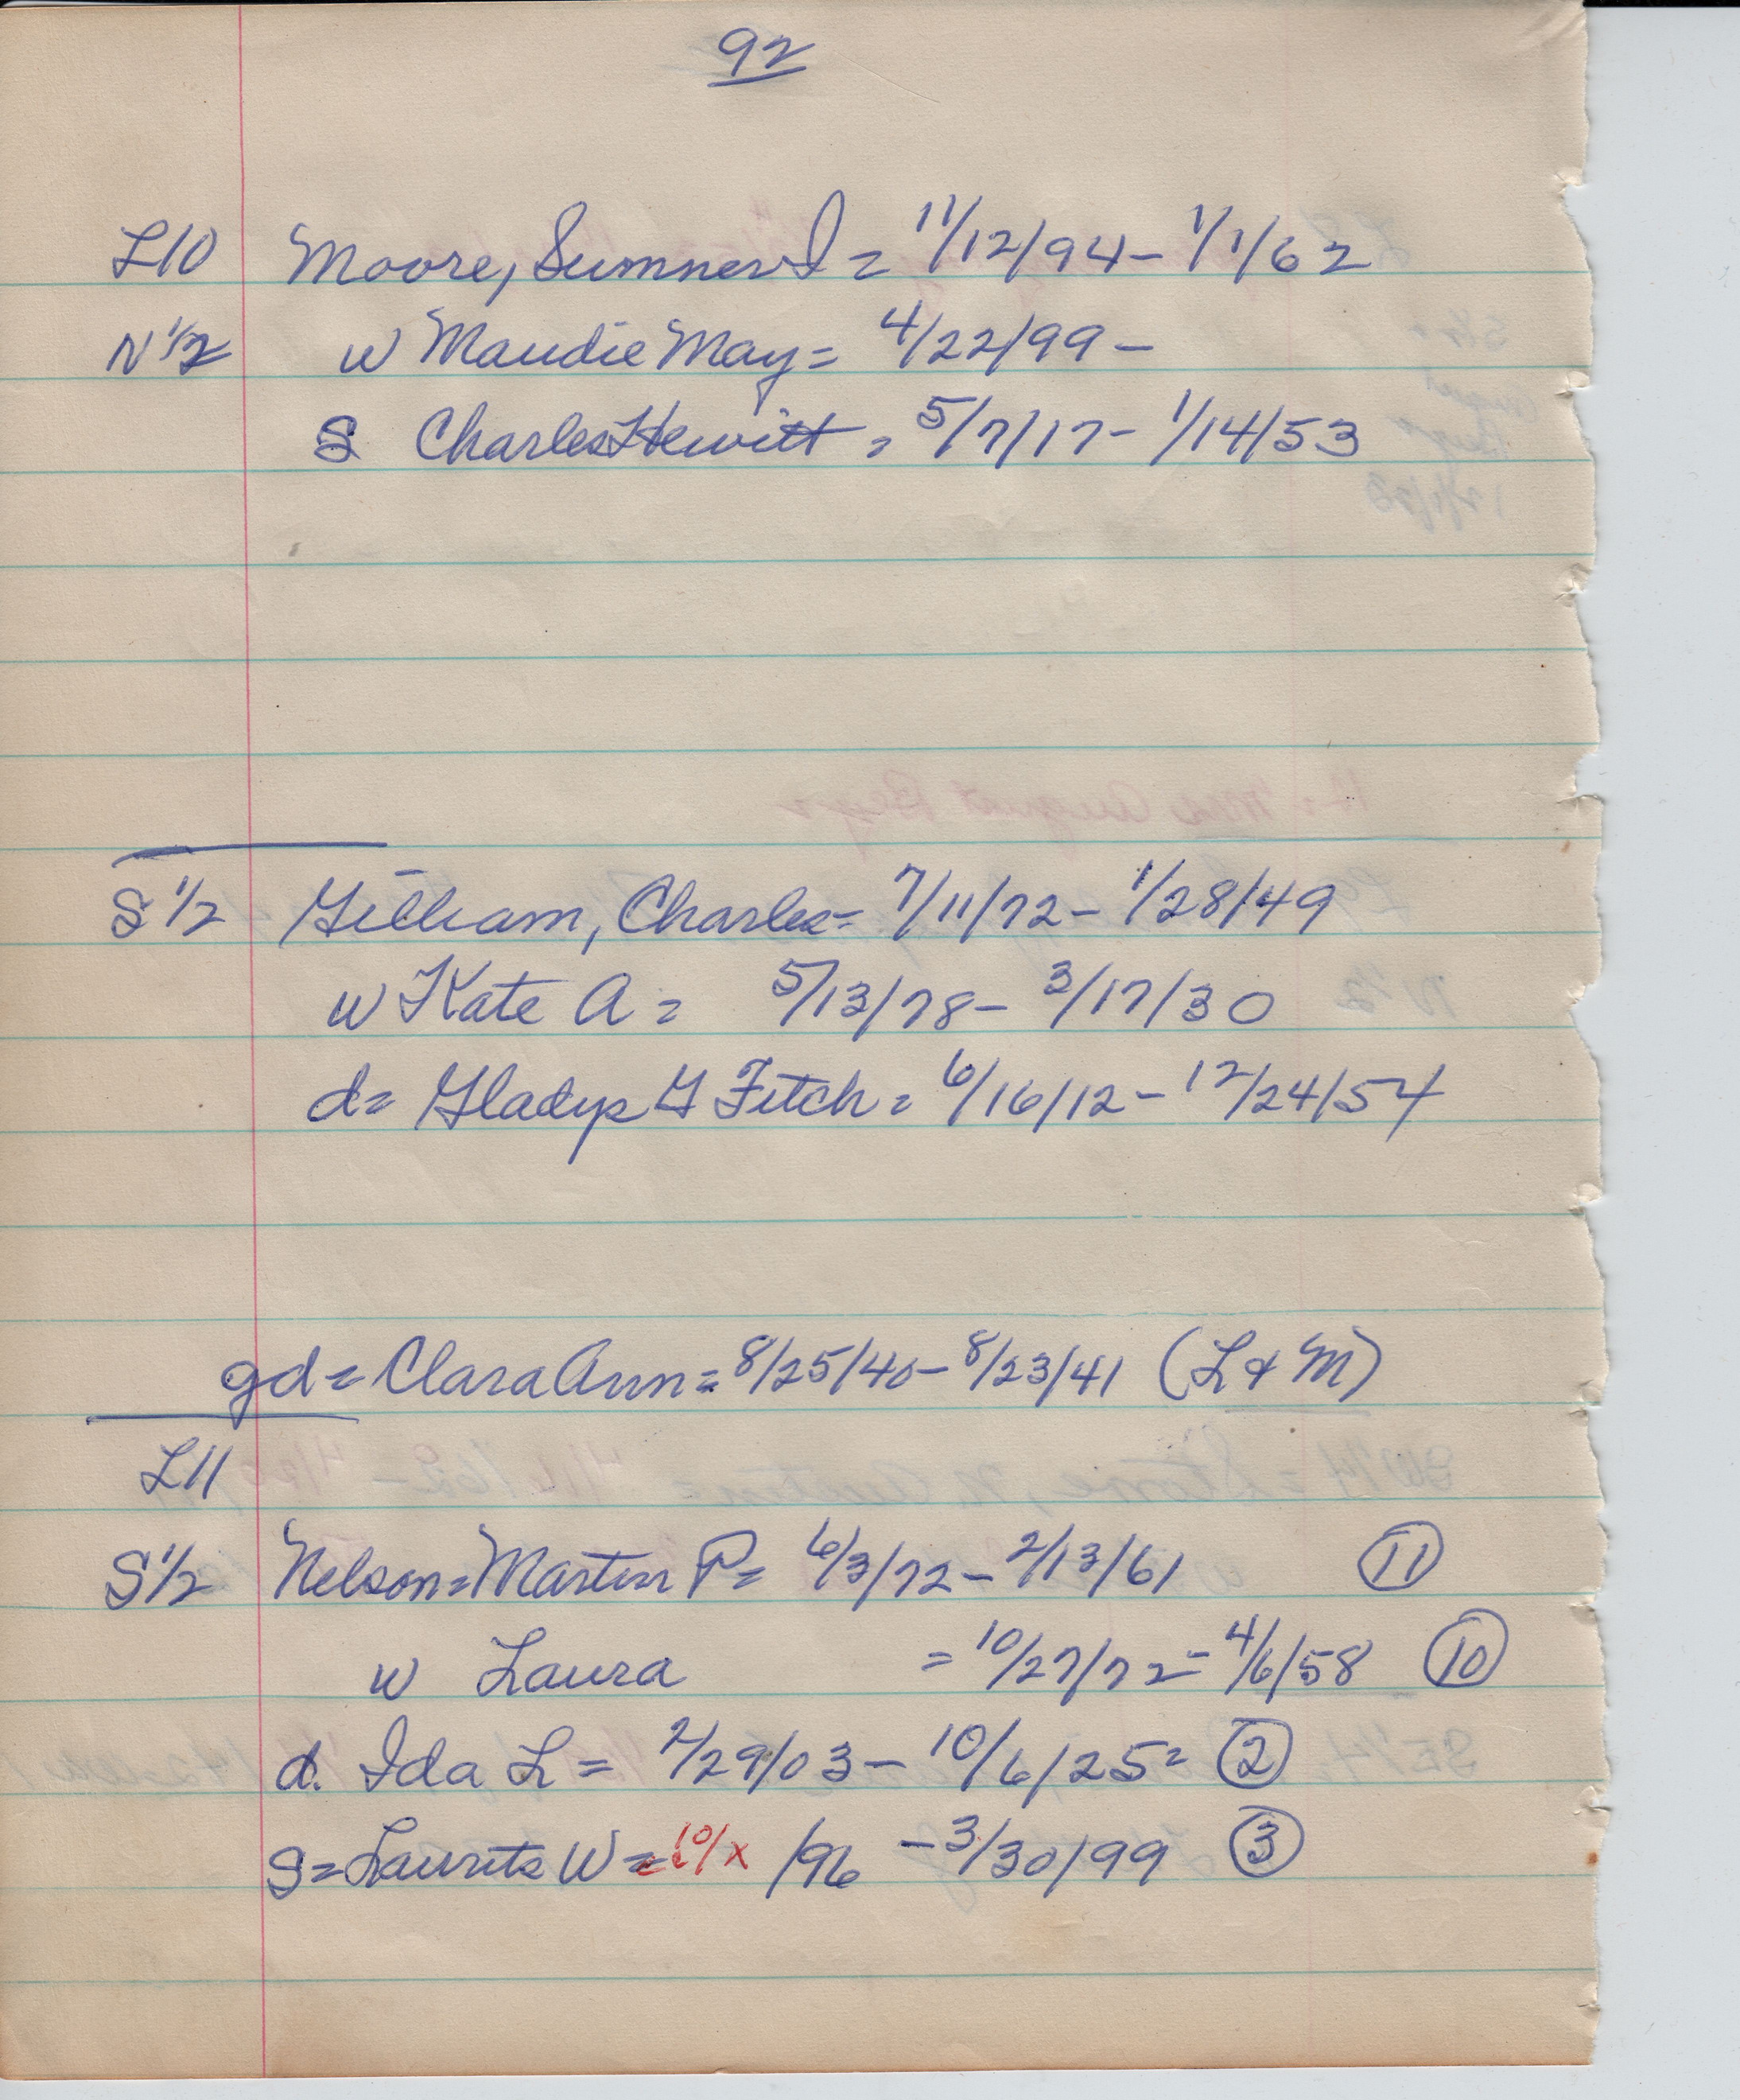 92
L10 Moore, Sumner I = 11/12/94 - 1/1/62
N 1/2 w Maudie May = 4/22/99 -
S Charles Hewitt = 5/7/17 - 1/14/53
S 1/2 Gilliam, Charles = 7/11/72 - 1/28/49
w Kate A = 5/13/78 - 3/17/30
d = Gladys G Fitch = 6/16/12 - 12/24/54
gd = Clara Ann = 8/25/40 - 8/23/41 (L & M)
L11
S 1/2 Nelson = Martin P = 6/3/72 - 2/13/61 11
w Laura = 10/27/72 = 4/6/58 10
d. Ida L = 2/29/03 - 10/6/25 = 2
S = Laurits W = 10/x /96 - 3/30/99 3